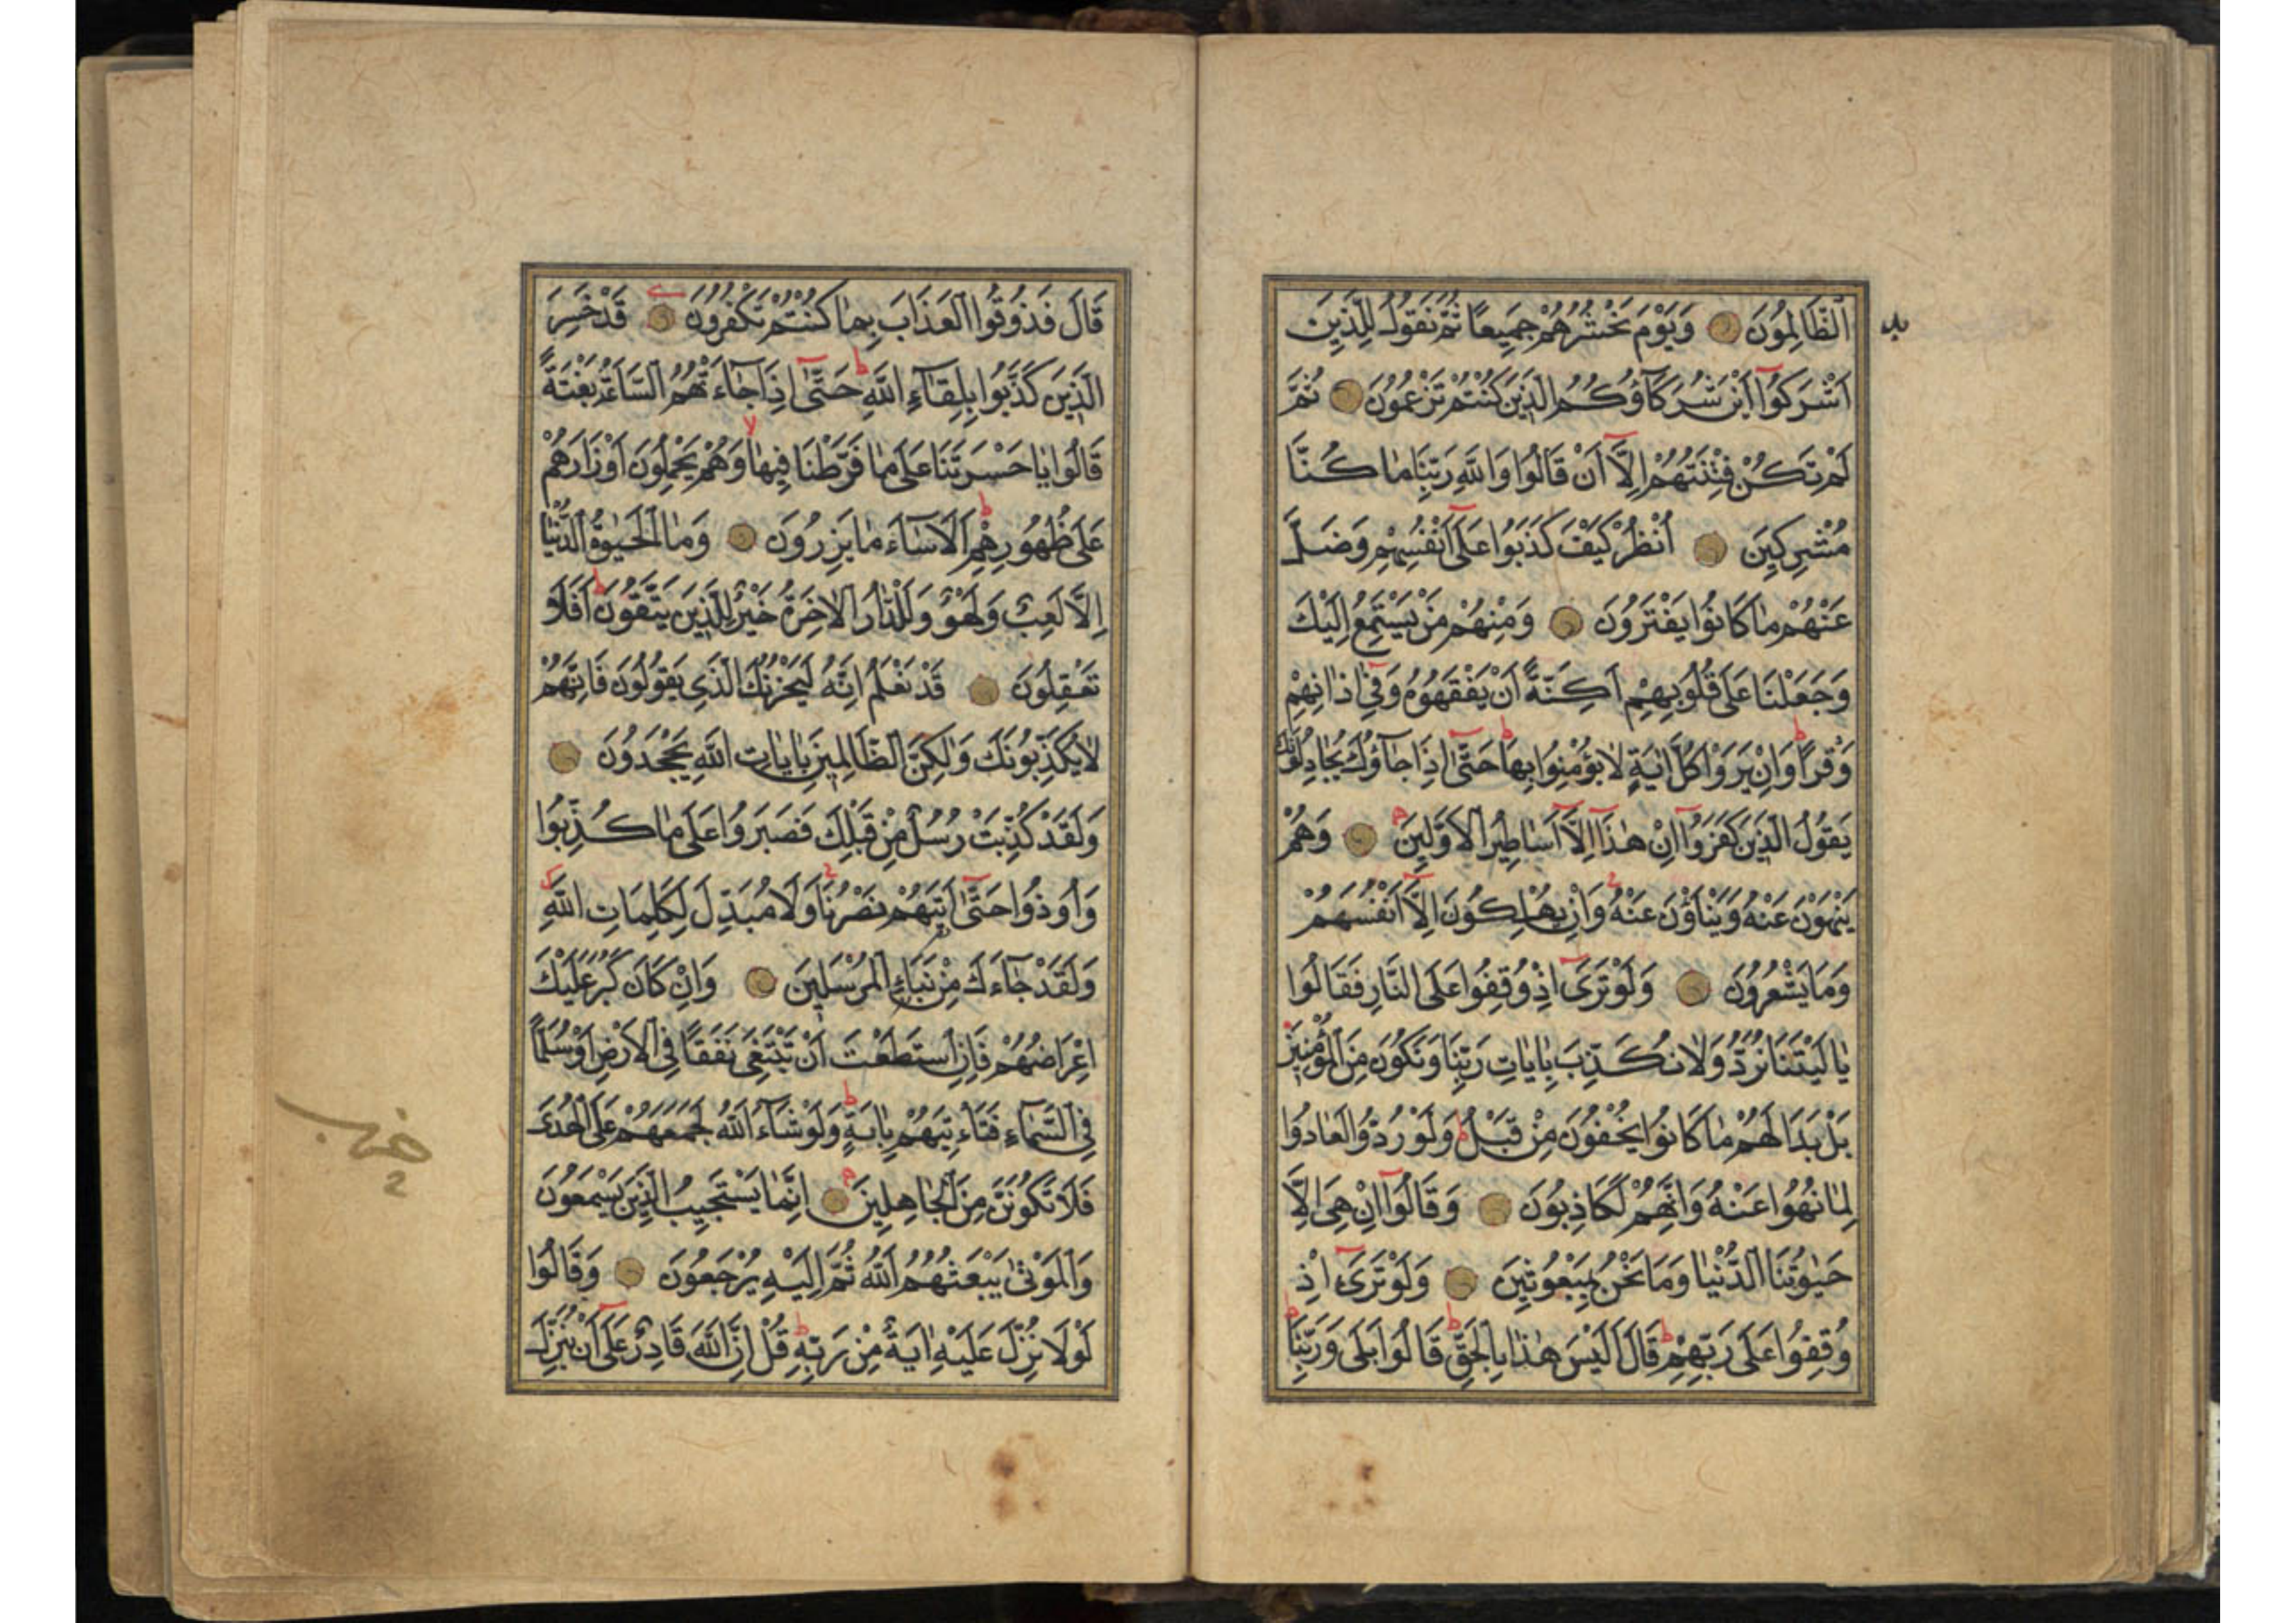 اَلظَّالِمُونَ وَيَوْمَ نَحْشُرُهُمْ جَمِيعًا ثُمَّ نَقُولُ لِلَّذِينَ
اَشْرَكُوٓا اَيْنَ شُرَكَآؤُكُمُ الَّذِينَ كُنْتُمْ تَزْعُمُونَ ثُمَّ
لَمْ تَكُنْ فِتْنَتُهُمْ اِلَّآ اَنْ قَالُوا وَاللّٰهِ رَبِّنَا مَا كُنَّا
مُشْرِكِينَ اُنْظُرْ كَيْفَ كَذَبُوا عَلٰٓى اَنْفُسِهِمْ وَضَلَّ
عَنْهُمْ مَا كَانُوا يَفْتَرُونَ وَمِنْهُمْ مَنْ يَسْتَمِعُ اِلَيْكَ
وَجَعَلْنَا عَلٰى قُلُوبِهِمْ اَكِنَّةً اَنْ يَفْقَهُوهُ وَفِٓى اٰذَانِهِمْ
وَقْرًا وَاِنْ يَرَوْا كُلَّ اٰيَةٍ لَا يُؤْمِنُوا بِهَا حَتّٰٓى اِذَا جَآؤُكَ يُجَادِلُونَكَ
يَقُولُ الَّذِينَ كَفَرُوٓا اِنْ هٰذَآ اِلَّآ اَسَاطِيرُ الْاَوَّلِينَ وَهُمْ
يَنْهَوْنَ عَنْهُ وَيَنْاَوْنَ عَنْهُ وَاِنْ يُهْلِكُونَ اِلَّآ اَنْفُسَهُمْ
وَمَا يَشْعُرُونَ وَلَوْ تَرٰٓى اِذْ وُقِفُوا عَلَى النَّارِ فَقَالُوا
يَا لَيْتَنَا نُرَدُّ وَلَا نُكَذِّبَ بِاٰيَاتِ رَبِّنَا وَنَكُونَ مِنَ الْمُؤْمِنِينَ
بَلْ بَدَا لَهُمْ مَا كَانُوا يُخْفُونَ مِنْ قَبْلُ وَلَوْ رُدُّوا لَعَادُوا
لِمَا نُهُوا عَنْهُ وَاِنَّهُمْ لَكَاذِبُونَ وَقَالُوٓا اِنْ هِىَ اِلَّا
حَيٰوتُنَا الدُّنْيَا وَمَا نَحْنُ بِمَبْعُوثِينَ وَلَوْ تَرٰٓى اِذْ
وُقِفُوا عَلٰى رَبِّهِمْ قَالَ اَلَيْسَ هٰذَا بِالْحَقِّ قَالُوا بَلٰى وَرَبِّنَا
قَالَ فَذُوقُوا الْعَذَابَ بِمَا كُنْتُمْ تَكْفُرُونَ قَدْ خَسِرَ
الَّذِينَ كَذَّبُوا بِلِقَآءِ اللّٰهِ حَتّٰٓى اِذَا جَاءَتْهُمُ السَّاعَةُ بَغْتَةً
قَالُوا يَا حَسْرَتَنَا عَلٰى مَا فَرَّطْنَا فِيهَا وَهُمْ يَحْمِلُونَ اَوْزَارَهُمْ
عَلٰى ظُهُورِهِمْ اَلَا سَاءَ مَا يَزِرُونَ وَمَا الْحَيٰوةُ الدُّنْيَا
اِلَّا لَعِبٌ وَلَهْوٌ وَلَلدَّارُ الْاٰخِرَةُ خَيْرٌ لِلَّذِينَ يَتَّقُونَ اَفَلَا
تَعْقِلُونَ قَدْ نَعْلَمُ اِنَّهُ لَيَحْزُنُكَ الَّذِى يَقُولُونَ فَاِنَّهُمْ
لَا يُكَذِّبُونَكَ وَلٰكِنَّ الظَّالِمِينَ بِاٰيَاتِ اللّٰهِ يَجْحَدُونَ
وَلَقَدْ كُذِّبَتْ رُسُلٌ مِنْ قَبْلِكَ فَصَبَرُوا عَلٰى مَا كُذِّبُوا
وَاُوذُوا حَتّٰٓى اَتٰيهُمْ نَصْرُنَا وَلَا مُبَدِّلَ لِكَلِمَاتِ اللّٰهِ
وَلَقَدْ جَاءَكَ مِنْ نَبَاِئِ الْمُرْسَلِينَ وَاِنْ كَانَ كَبُرَ عَلَيْكَ
اِعْرَاضُهُمْ فَاِنِ اسْتَطَعْتَ اَنْ تَبْتَغِىَ نَفَقًا فِى الْاَرْضِ اَوْ سُلَّمًا
فِى السَّمَآءِ فَتَاْتِيَهُمْ بِاٰيَةٍ وَلَوْ شَآءَ اللّٰهُ لَجَمَعَهُمْ عَلَى الْهُدٰى
فَلَا تَكُونَنَّ مِنَ الْجَاهِلِينَ اِنَّمَا يَسْتَجِيبُ الَّذِينَ يَسْمَعُونَ
وَالْمَوْتٰى يَبْعَثُهُمُ اللّٰهُ ثُمَّ اِلَيْهِ يُرْجَعُونَ وَقَالُوا
لَوْلَا نُزِّلَ عَلَيْهِ اٰيَةٌ مِنْ رَبِّهِ قُلْ اِنَّ اللّٰهَ قَادِرٌ عَلٰٓى اَنْ يُنَزِّلَ
حزب